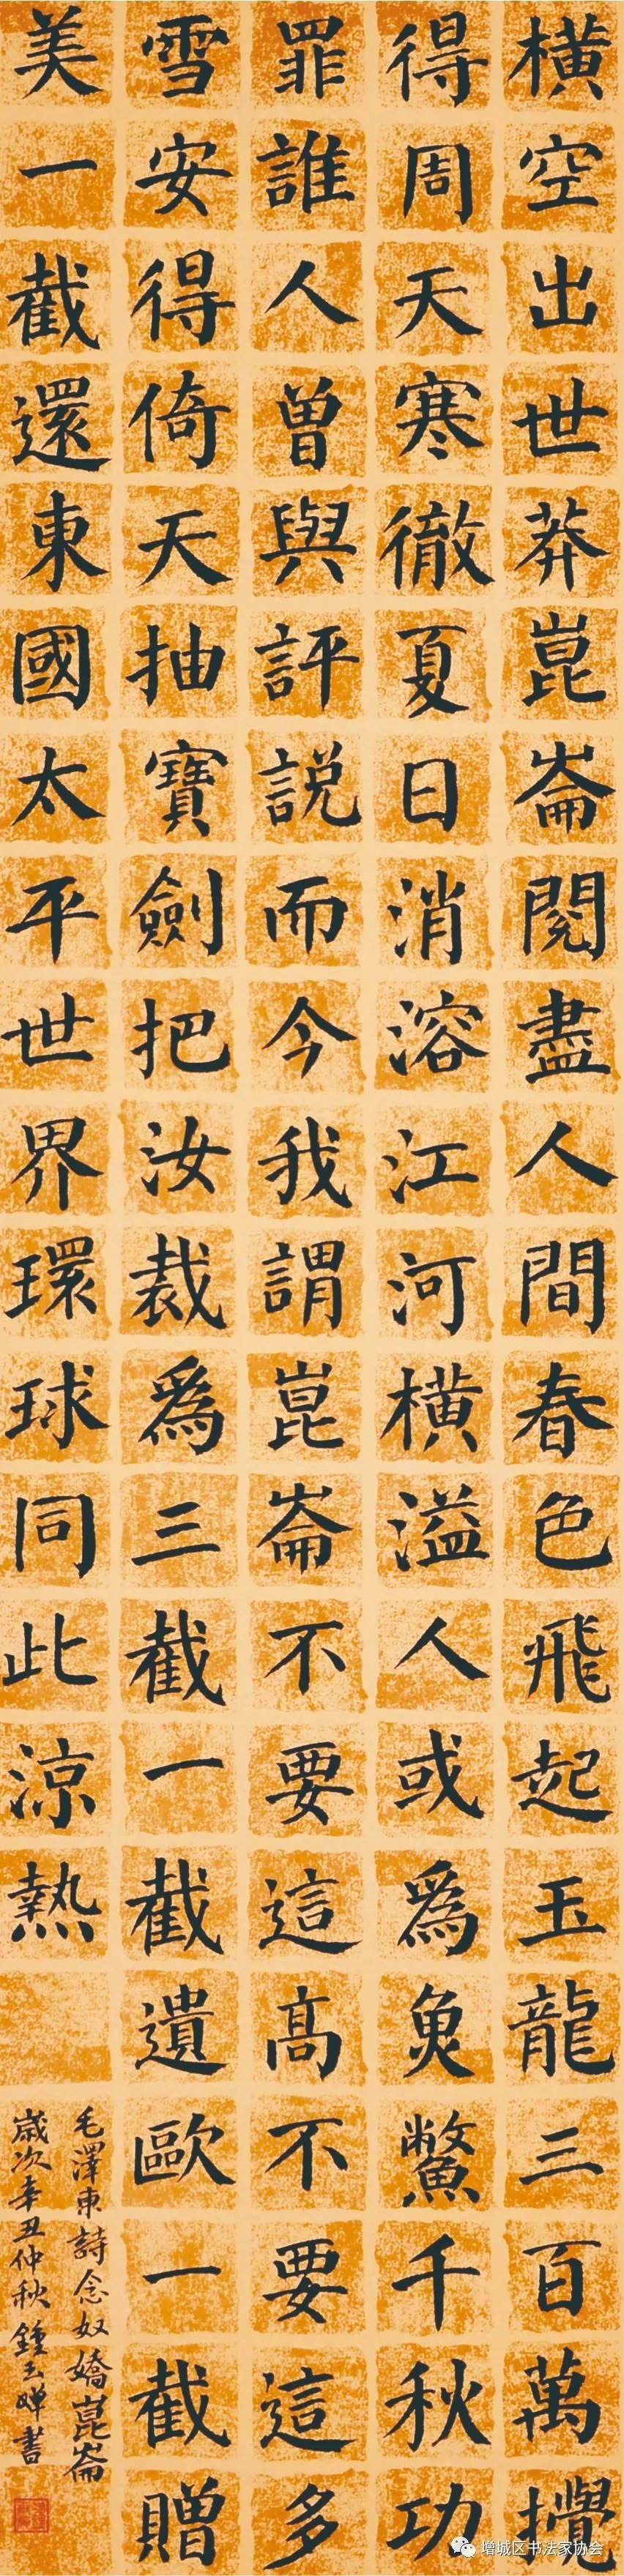 橫空出世莽崑崙閱盡人間春色飛起玉龍三百萬攪
得周天寒徹夏日消溶江河橫溢人或爲魚鱉千秋功
罪誰人曾與評説而今我謂崑崙不要這髙不要這多
雪安得倚天抽寶劍把汝裁爲三截一截遺歐一截贈
美一截還東國太平世界環球同此涼熱
毛澤東詩念奴嬌崑崙
歲次辛丑仲秋鍾云嬋書
增城区书法家协会